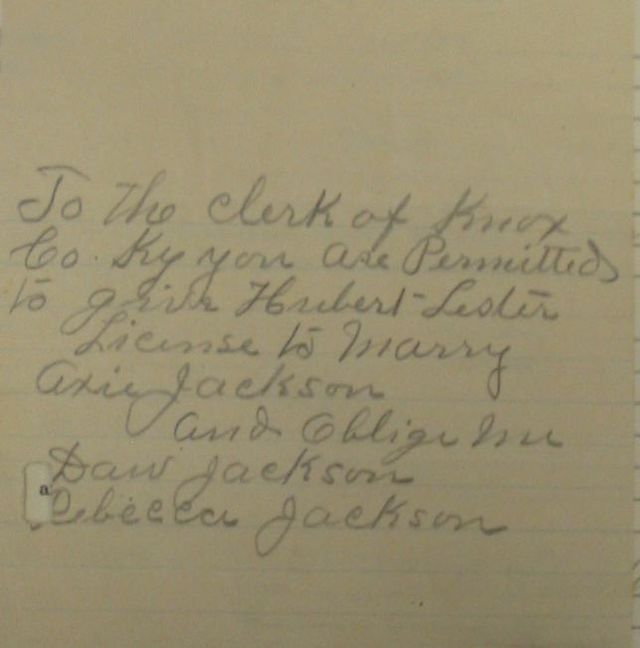 To the Clerk of Knox
Co. Ky you are Permitted
to give Hubert Lester
License to Marry
Axie Jackson
and Oblige me
Daw Jackson
a
Rebecca Jackson